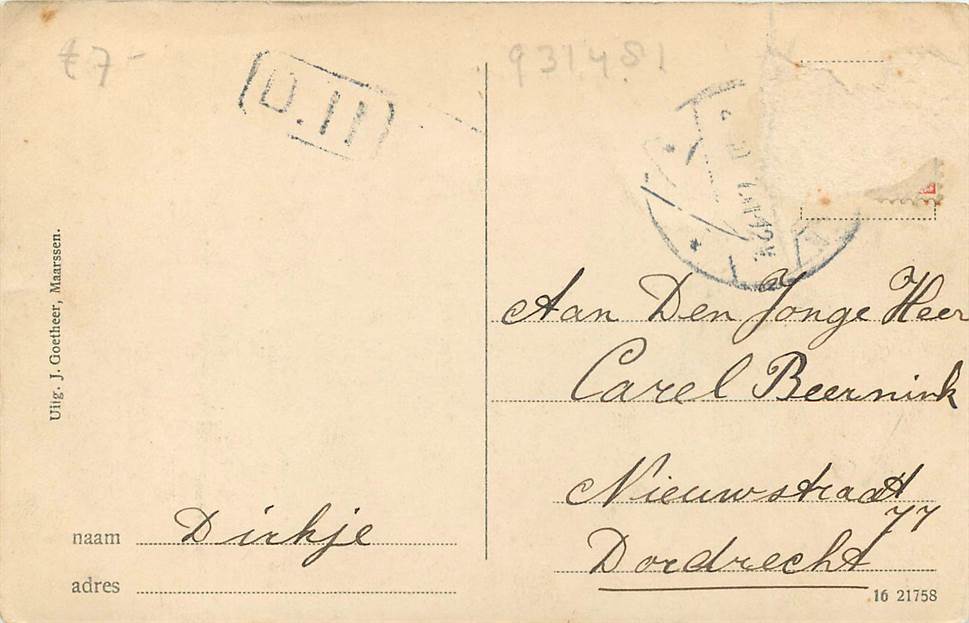 £7-
931481
D.II
Uitg. J. Goetheer, Maarssen.
Aan Den Jonge Heer
Carel Beernink
Nieuwstraat
77
Dordrecht
naam Dirkje
adres
16 21758